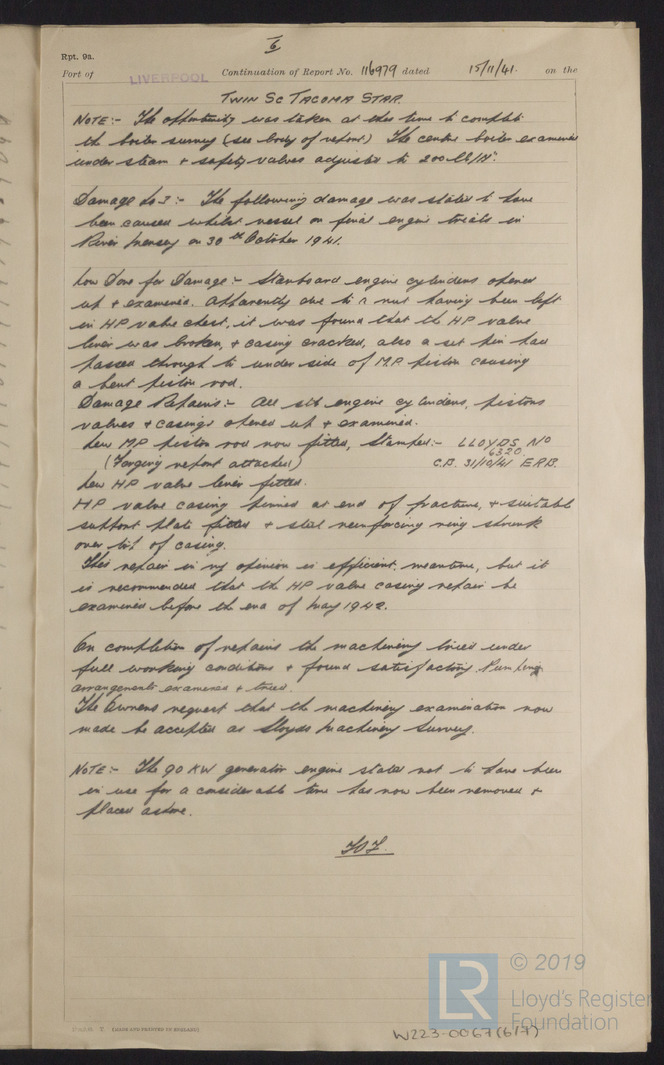 6
Rpt. 9a.
Port of LIVERPOOL Continuation of Report No. 116979 dated 15/11/41. on the
TWIN SC TACOMA STAR.
NOTE:- The opportunity was taken at this time to complete
the boiler survey (see body of report) The centre boiler examined
under steam & safety valves adjusted to 200 lb/in².
Damage No 3:- The following damage was stated to have
been caused whilst vessel on final engine trials in
River Mersey on 30th October 1941.
Now Done for Damage:- Starboard engine cylinders opened
up & examined. Apparently due to a nut having been left
in HP valve chest, it was found that the HP valve
liner was broken, & casing cracked, also a set pin had
passed through to under side of M.P. piston causing
a bent piston rod.
Damage Repairs:- All stb engine cylinders, pistons
valves & casings opened up & examined.
New MP piston rod now fitted, stamped:- LLOYDS No
6320
(Forging report attached) C.B. 31/10/41 E.R.B.
New HP valve liner fitted.
HP valve casing pinned at end of fracture, & suitable
support plate fitted & steel reinforcing ring shrunk
over of casing.
This repair in my opinion is efficient meantime, but it
is recommended that the HP valve casing repair be
examined before the end of May 1942.
On completion of repairs the machinery tried under
full working conditions & found satisfactory. Pumping
arrangements examined & tried.
The Owners request that the machinery examination now
made be accepted as Lloyds Machinery Survey.
NOTE:- The 90 KW generator engine stated not to have been
in use for a considerable time has now been removed &
placed ashore.
LR
© 2019
Lloyd's Register
Foundation
(MADE AND PRINTED IN ENGLAND)
W223-0067(6/7)